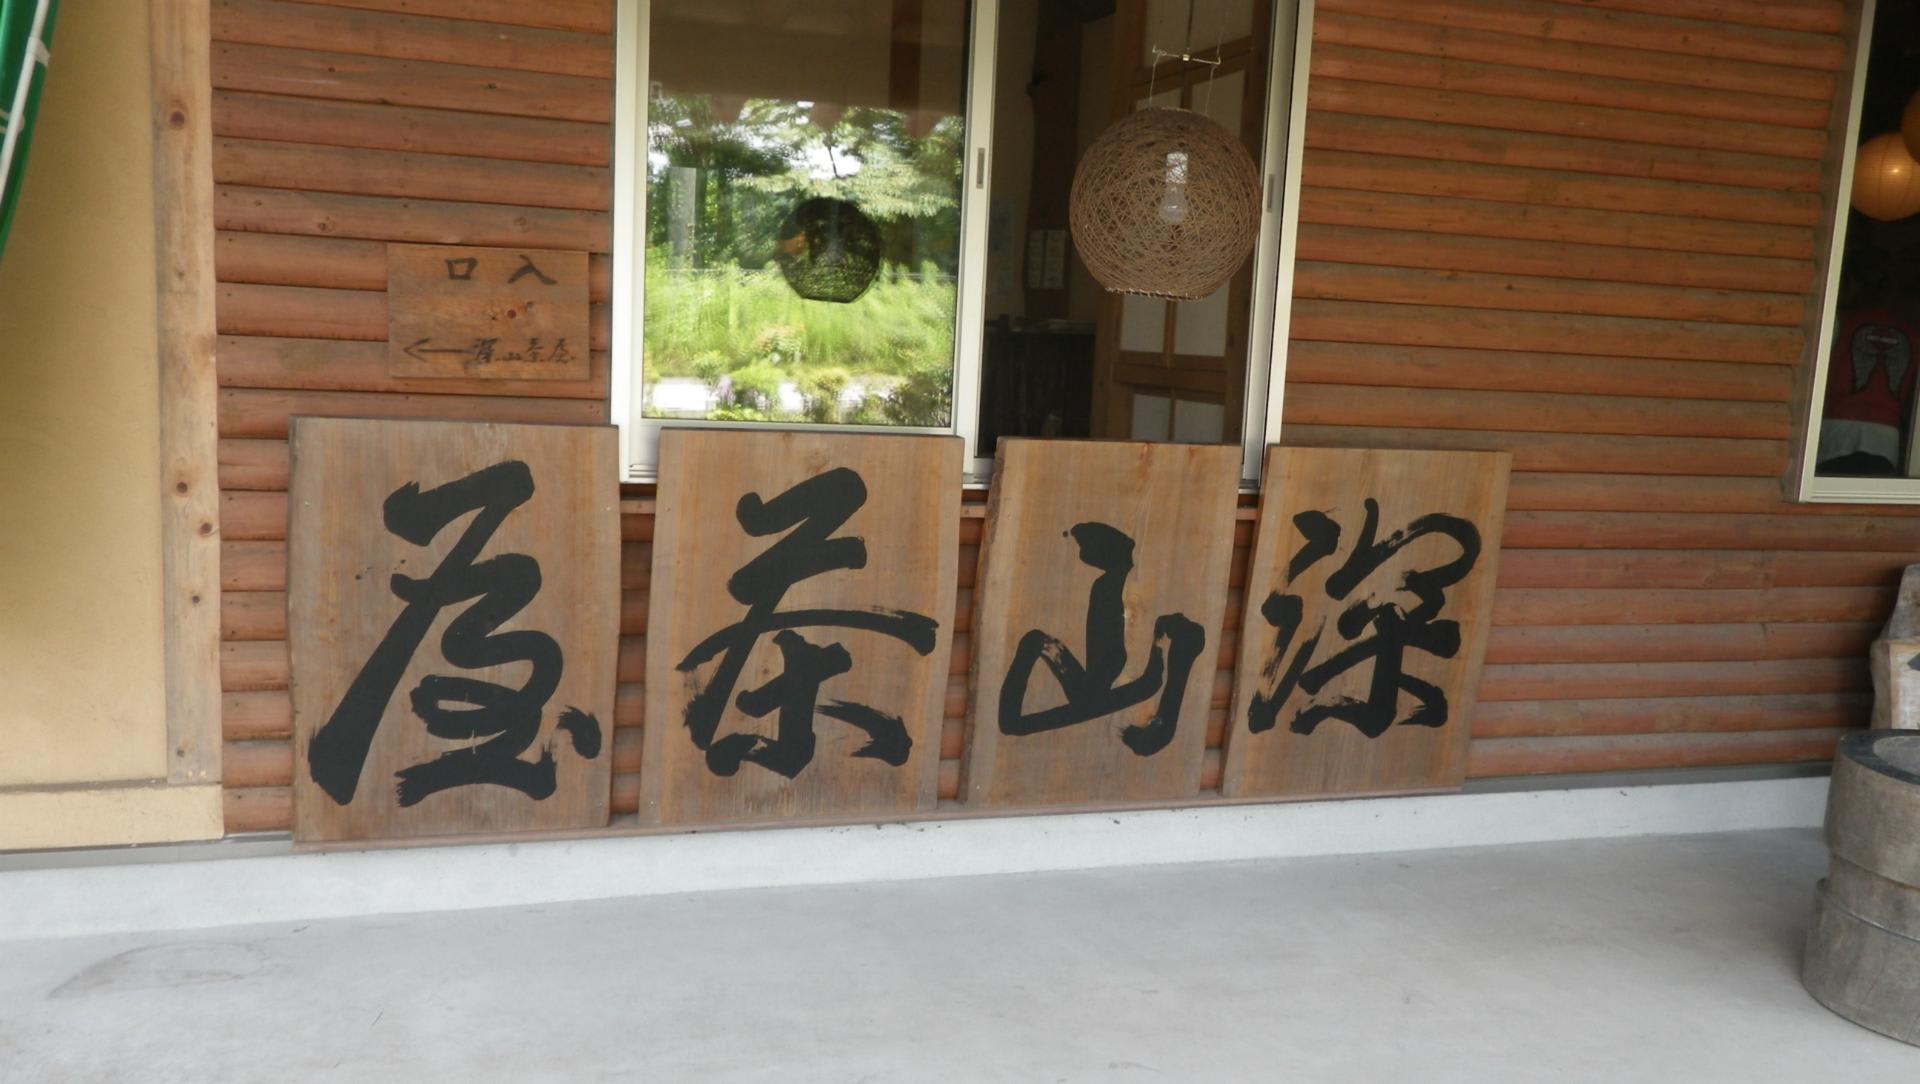 入口
←深山茶屋
深山茶屋